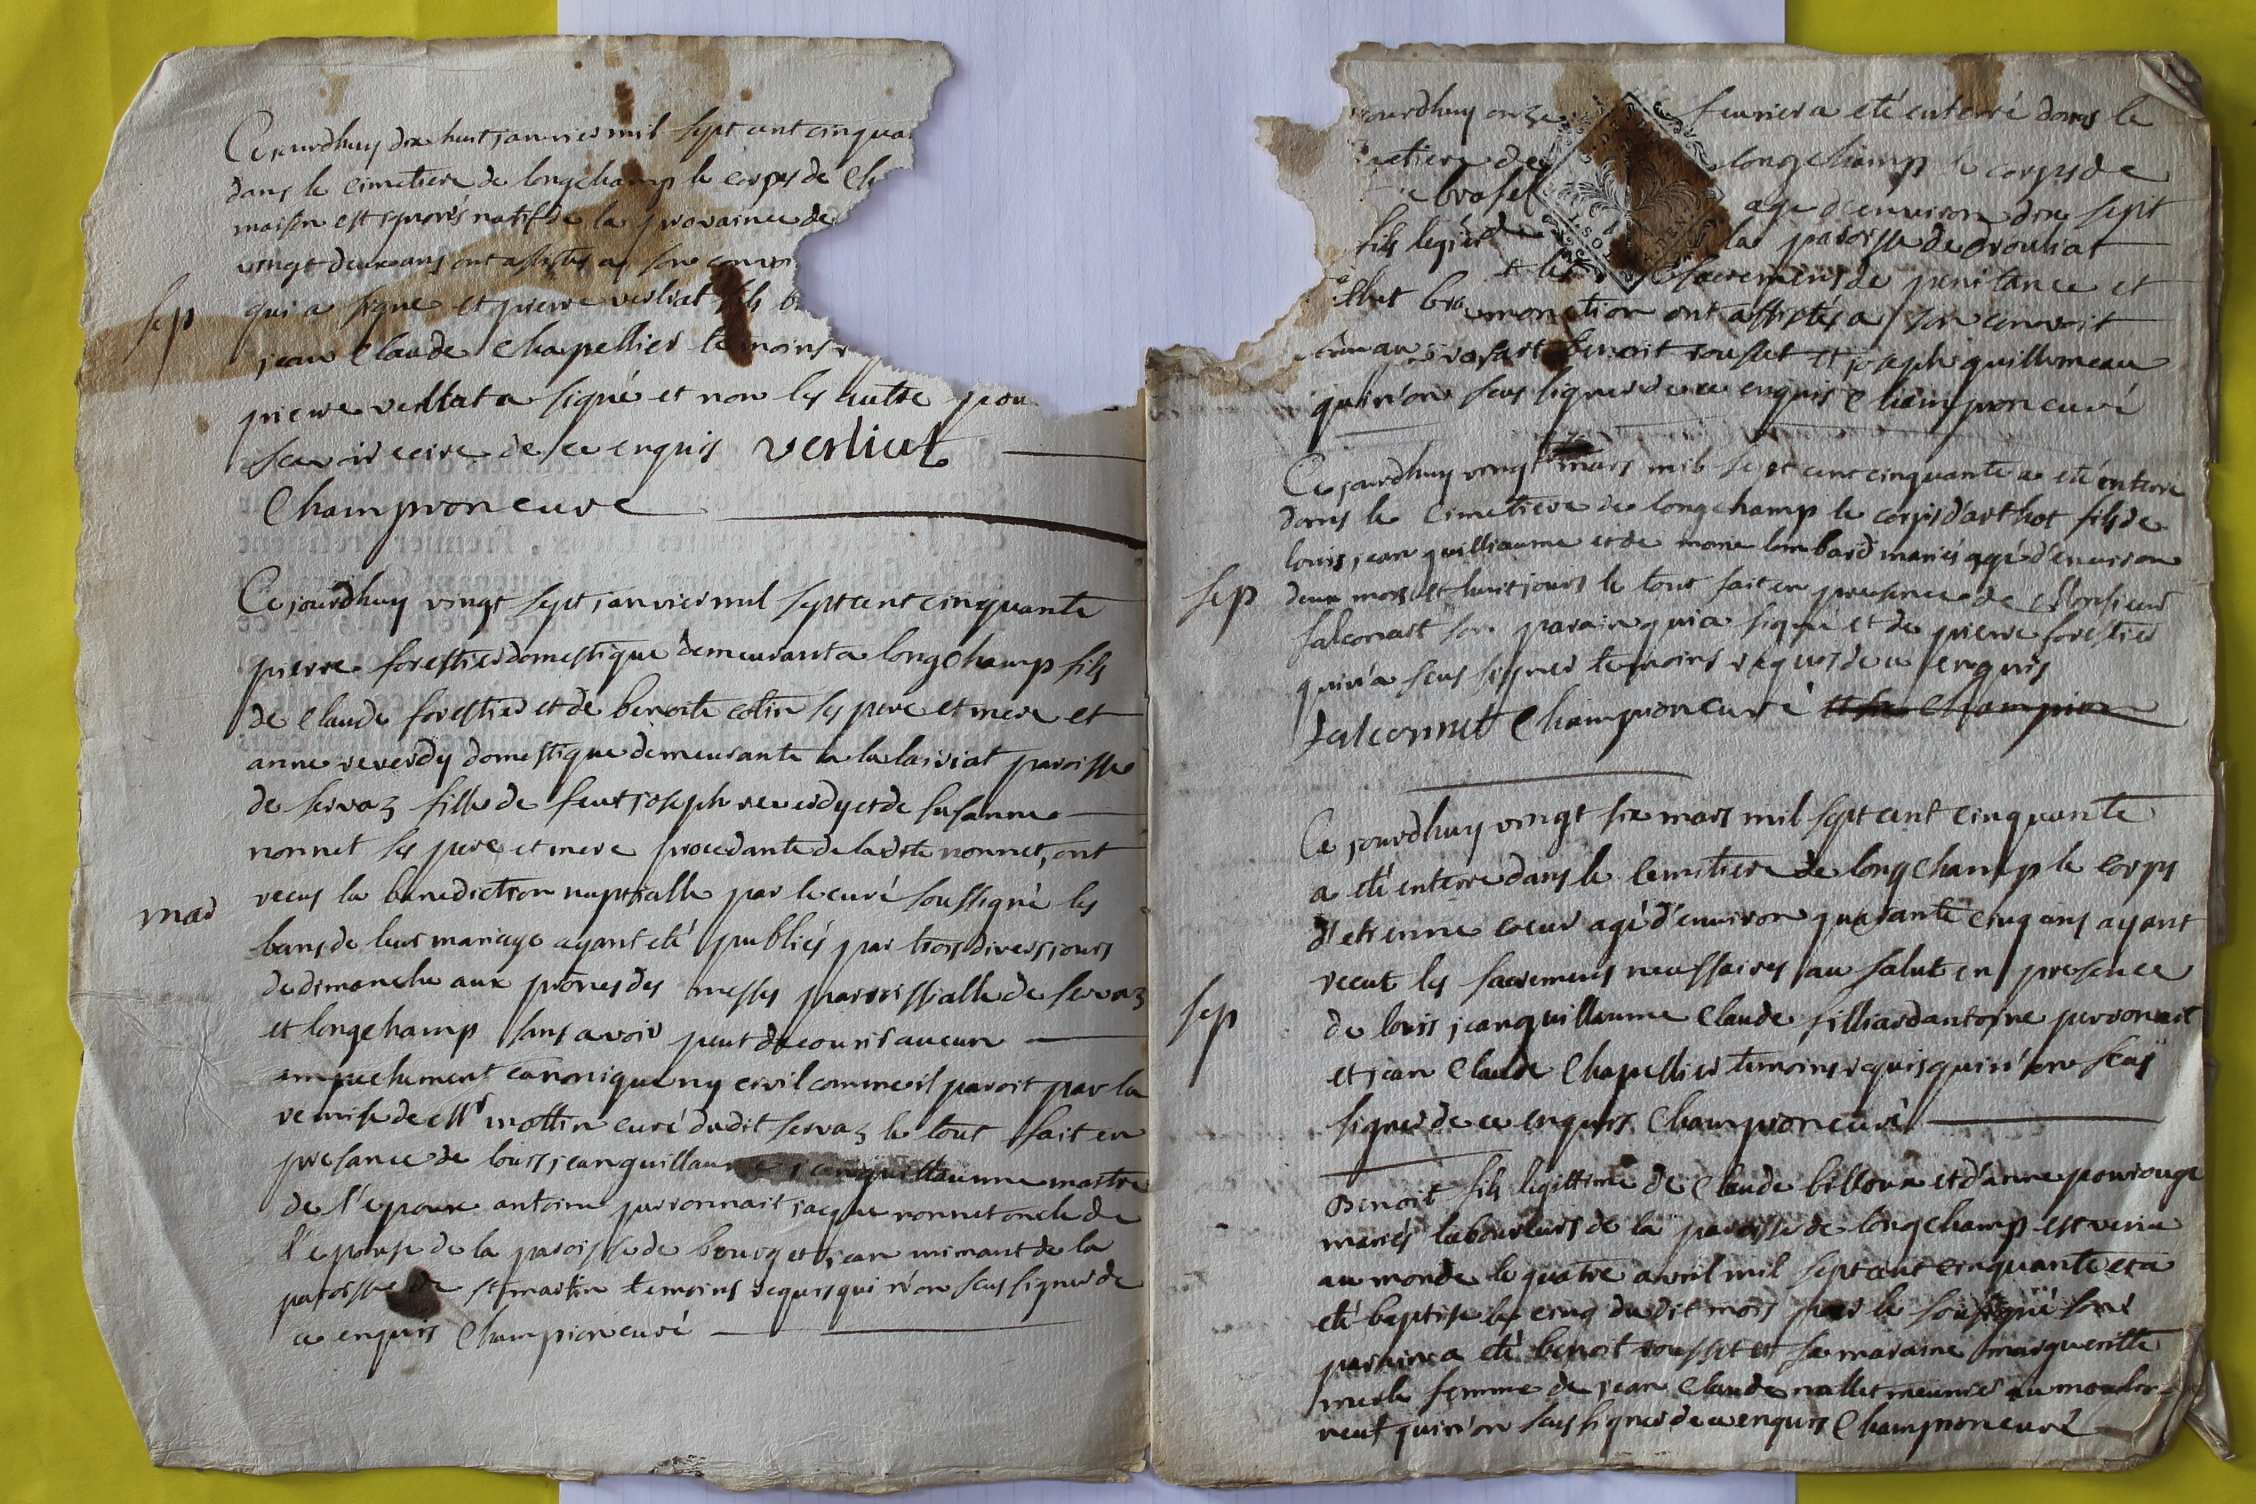 Ce jourdhuy dix huit janvier mil sept cent cinqua
dans le cimetiere de longchamp le corps de
maison est natif de la provaince de
vingt deux ans ont assistes a son convoi
sep
qui a signé et pierre verliat fils
jean Claude Chapellier temoins
pierre verliat a signé et non les autre pou
scavoir ecire de ce enquis verliat
Championcure
Ce jourdhuy vingt sept janvier mil sept cent cinquante
pierre forestier domestique demeurant a longchamp fils
de Claude forestier et de benoite colin ses pere et mere et
anne reverdy domestique demeurante a la lairiat paroisse
de servaz fille de feut joseph reverdy et de susanne
nonnet ses pere et mere procedante de ladite nonnet, ont
mar
recus la benediction nuptialle par le curé soussigné les
bans de leur mariage ayant eté publiés par trois divers jours
de dimanche aux prones des messes paroissialle de servaz
et longchamp sans avoir peut decouvrir aucun
empechement canonique ny civil comme il paroit par la
remise de Mr mottin curé dudit servaz le tout fait en
presance de louis jeanguillaume jeanguillaume maitre
de l'epoux antoine perronnait jacque nonnet oncle de
l'epouse de la paroisse de bourg et jean mimant de la
paroisse de st martin temoins requis qui n'on scus signer de
ce enquis Championcuré
jourdhuy onze fevrier a eté enterré dans le
metiere de longchamp le corps de
agé d'environ dix sept
fils legi de la paroisse de drouliat
et les sacremens de penitance et
monition ont assistés a son convoit
benoit rousset et joseph guillemeau
qui n'on scus signer de ce enquis Championcuré
Ce jourdhuy vingt mars mil sept cent cinquante a eté enterre
dans le cimetiere de longchamp le corps d'arthot fils de
louis jean guilliaume et de marie lombard mariés agé d'environ
sep
deux mois et huit jours le tout fait en presence de Monsieur
falconait son parain qui a signé et de pierre forestier
qui n'a scus signer temoins requis de ce enquis
falconnet Championcuré Champion
Ce jourdhuy vingt six mars mil sept cent cinquante
a eté enterre dans le cemitiere de longchamp le corps
d'etienne coeur agé d'environ quarante cinq ans ayant
recut les sacremens necessaires au salut en presence
sep
de louis jeanguillaume Claude filliard antoine perronait
et jean Claude Chapellier temoins requis qui n'on scus
signer de ce enquis Championcuré
Benoit fils legittime de Claude billoux et d'anne pourouge
mariés laboureurs de la paroisse de longchamp est venu
au monde le quatre avril mil sept cent cinquante et a
eté baptise le cinq dudit mois par le sousigné son
parain a eté benoit rousset et sa maraine marguerite
merle femme de jean Claude nallet meunier au moulin
neut qui n'on scus signer de ce enquis Championcuré